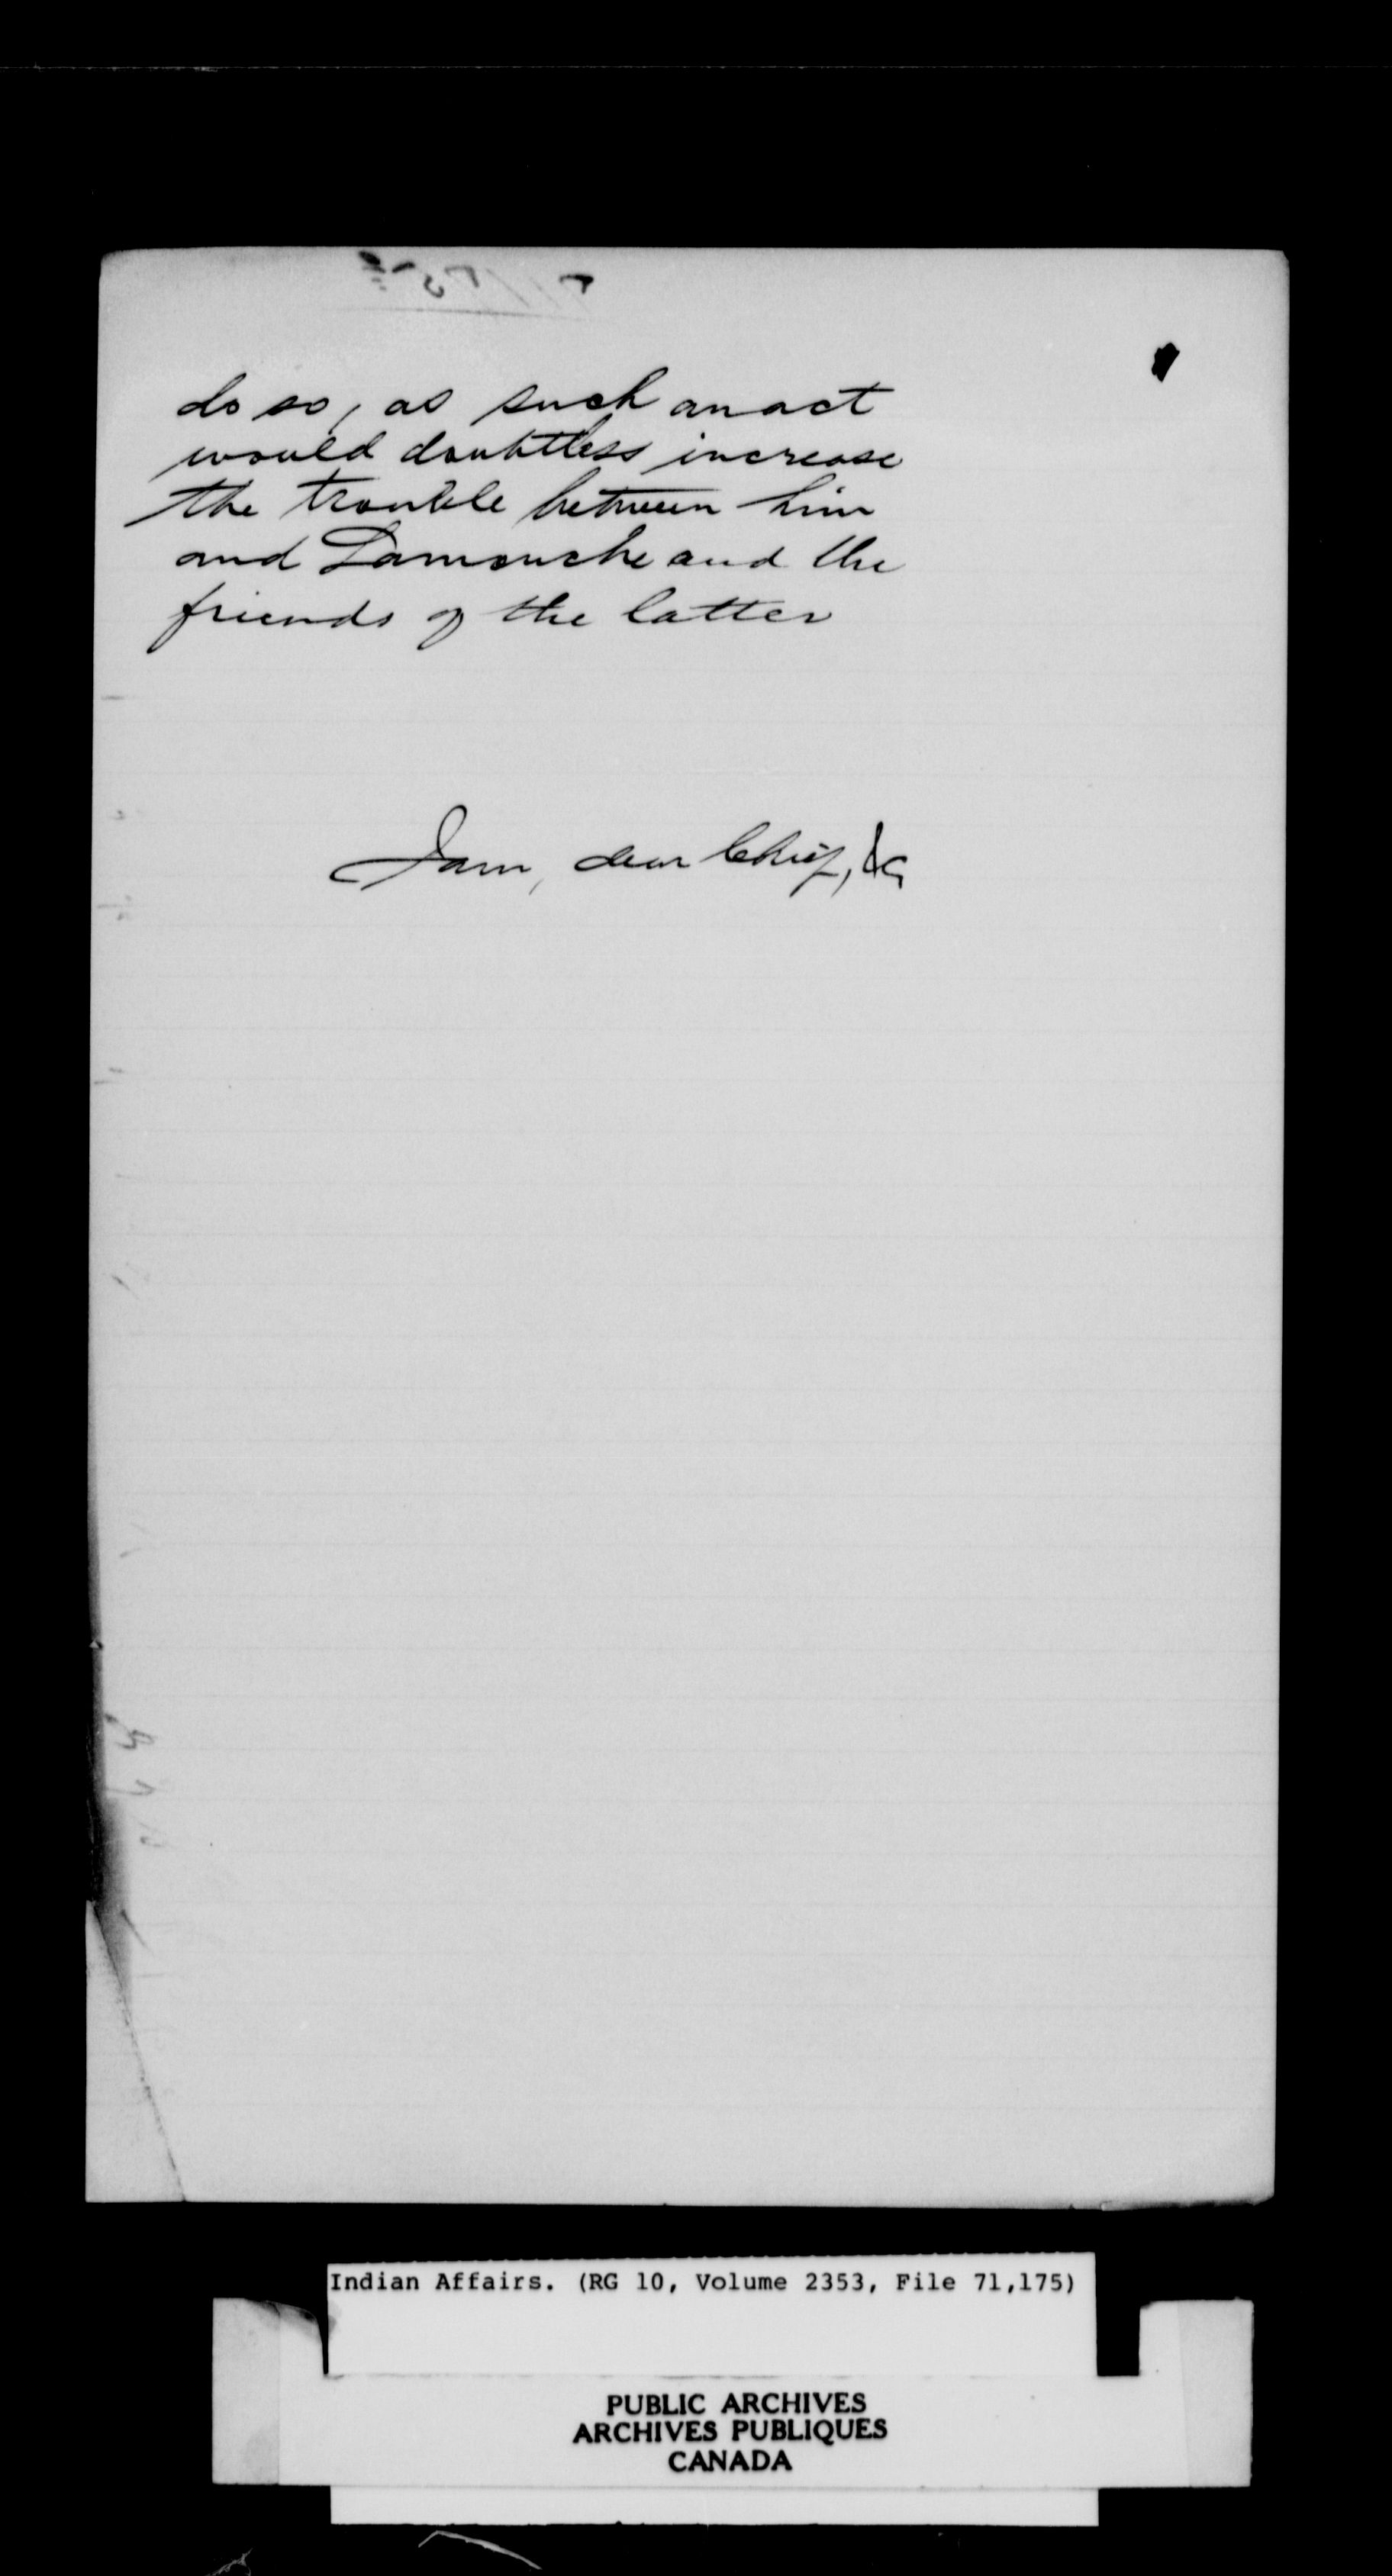 do so, as such an act
would doubtless increase
the trouble between him
and Lamouche and the
friends of the latter
I am, dear Chief, &c
Indian Affairs. (RG 10, Volume 2353, File 71,175)
PUBLIC ARCHIVES
ARCHIVES PUBLIQUES
CANADA